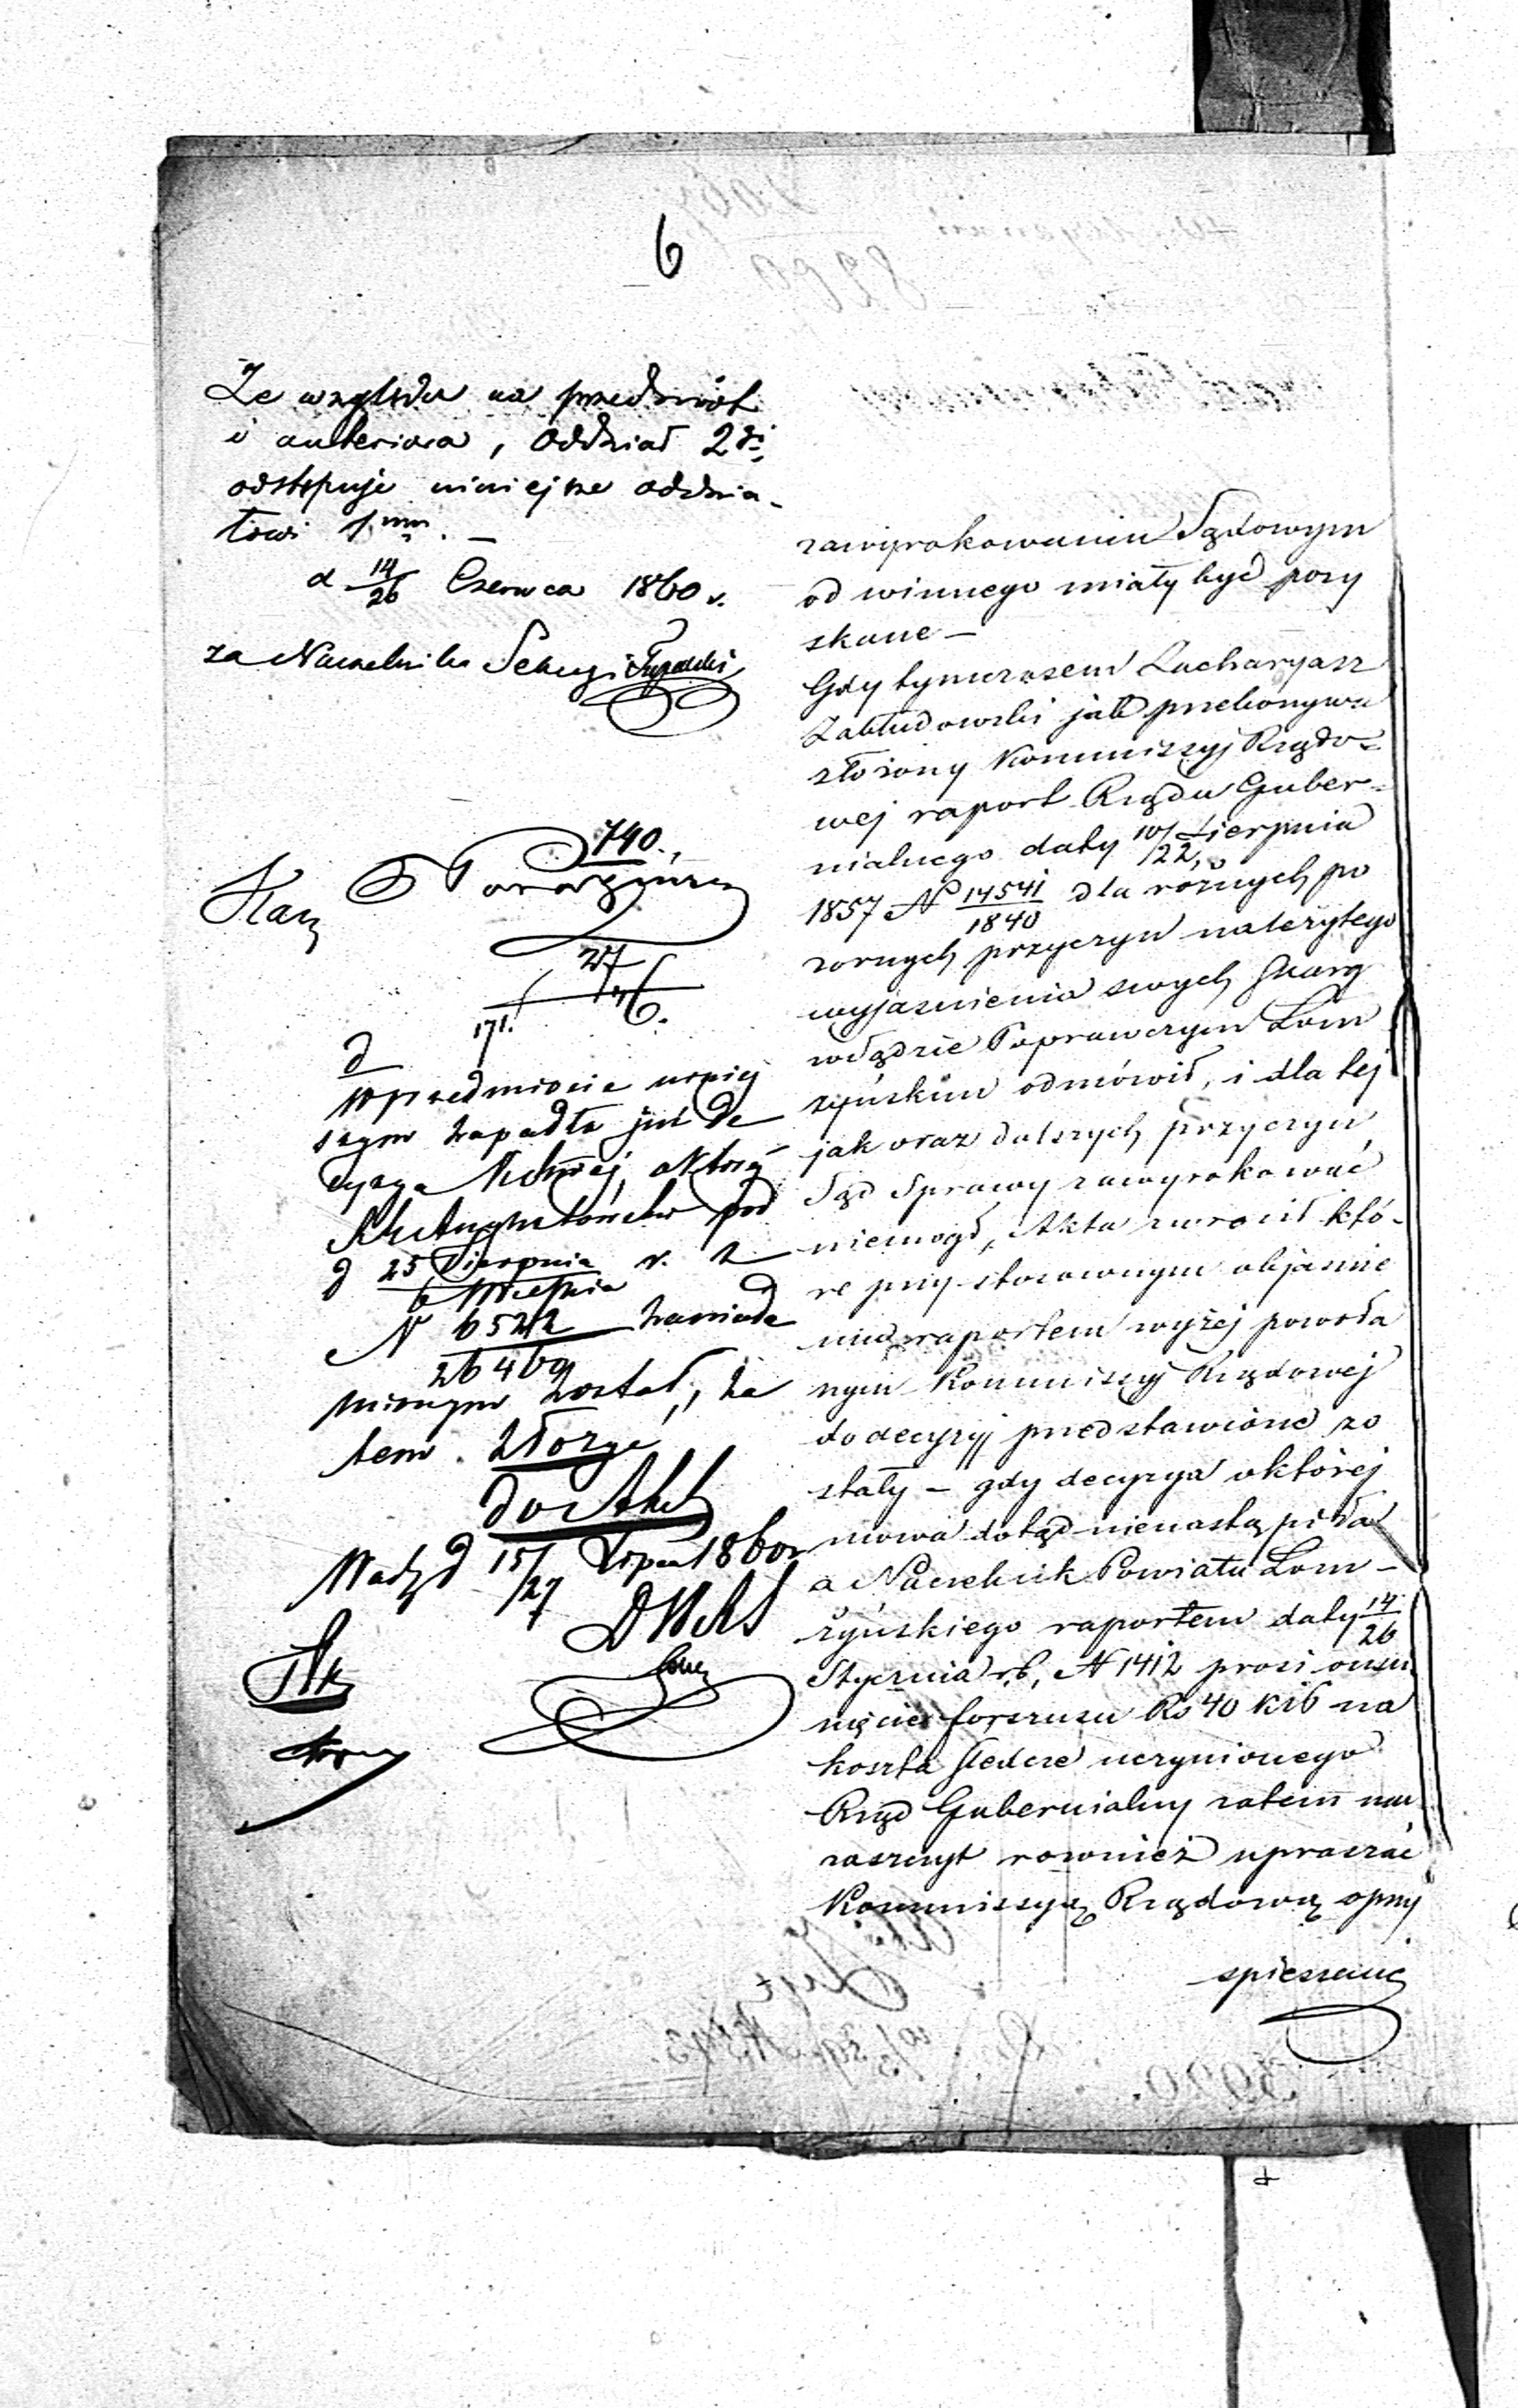 6
Ze względu na przedmiot
i anteriora, Oddział 2gi
odstępuje niniejsze oddzia-
łowi 1mu. —
d 14/26 Czerwca 1860 r.
za Naczelnika Sekcyi
740.
27
171.
d
W przedmiocie niniej
szym zapadła już de
cyzya
pod
d 25 Sierpnia r. z
6 Września
N 6522 zawiado
26469
mionym został, za
tem. złożyć
do Akt
d 15/27 Lipca 1860 r
zawyrokowaniu Sądowym
od winnego miały być pozy
skane —
Gdy tymczasem Zacharyasz
Zabłudowski jak przekonywa
złożony Kommissyi Rządo-
wej raport Rządu Guber-
nialnego daty 10/22 Sierpnia
1857 N 14541/1840 dla różnych po
zornych przyczyn należytego
wyjaśnienia swych skarg
w Sądzie Poprawczym Łom
żyńskim odmówił, i dla tej
jak oraz dalszych przyczyn
Sąd Sprawy zawyrokować
niemógł, Akta zwrócił któ-
re przy stosownym objaśnie
niu raportem wyżej powoła
nym Kommissyi Rządowej
do decyzyi przedstawione zo
stały — gdy decyzya o której
mowa dotąd nienastąpiła
a Naczelnik Powiatu Łom-
żyńskiego raportem daty 14/26
Stycznia r.b, N 1412 prosi o usu
nięcie forszusu Rs 40 k 16 na
koszta śledcze uczynionego
Rząd Gubernialny zatem ma
zaszczyt rownież upraszać
Kommissyą Rządową o przy
spieszenie